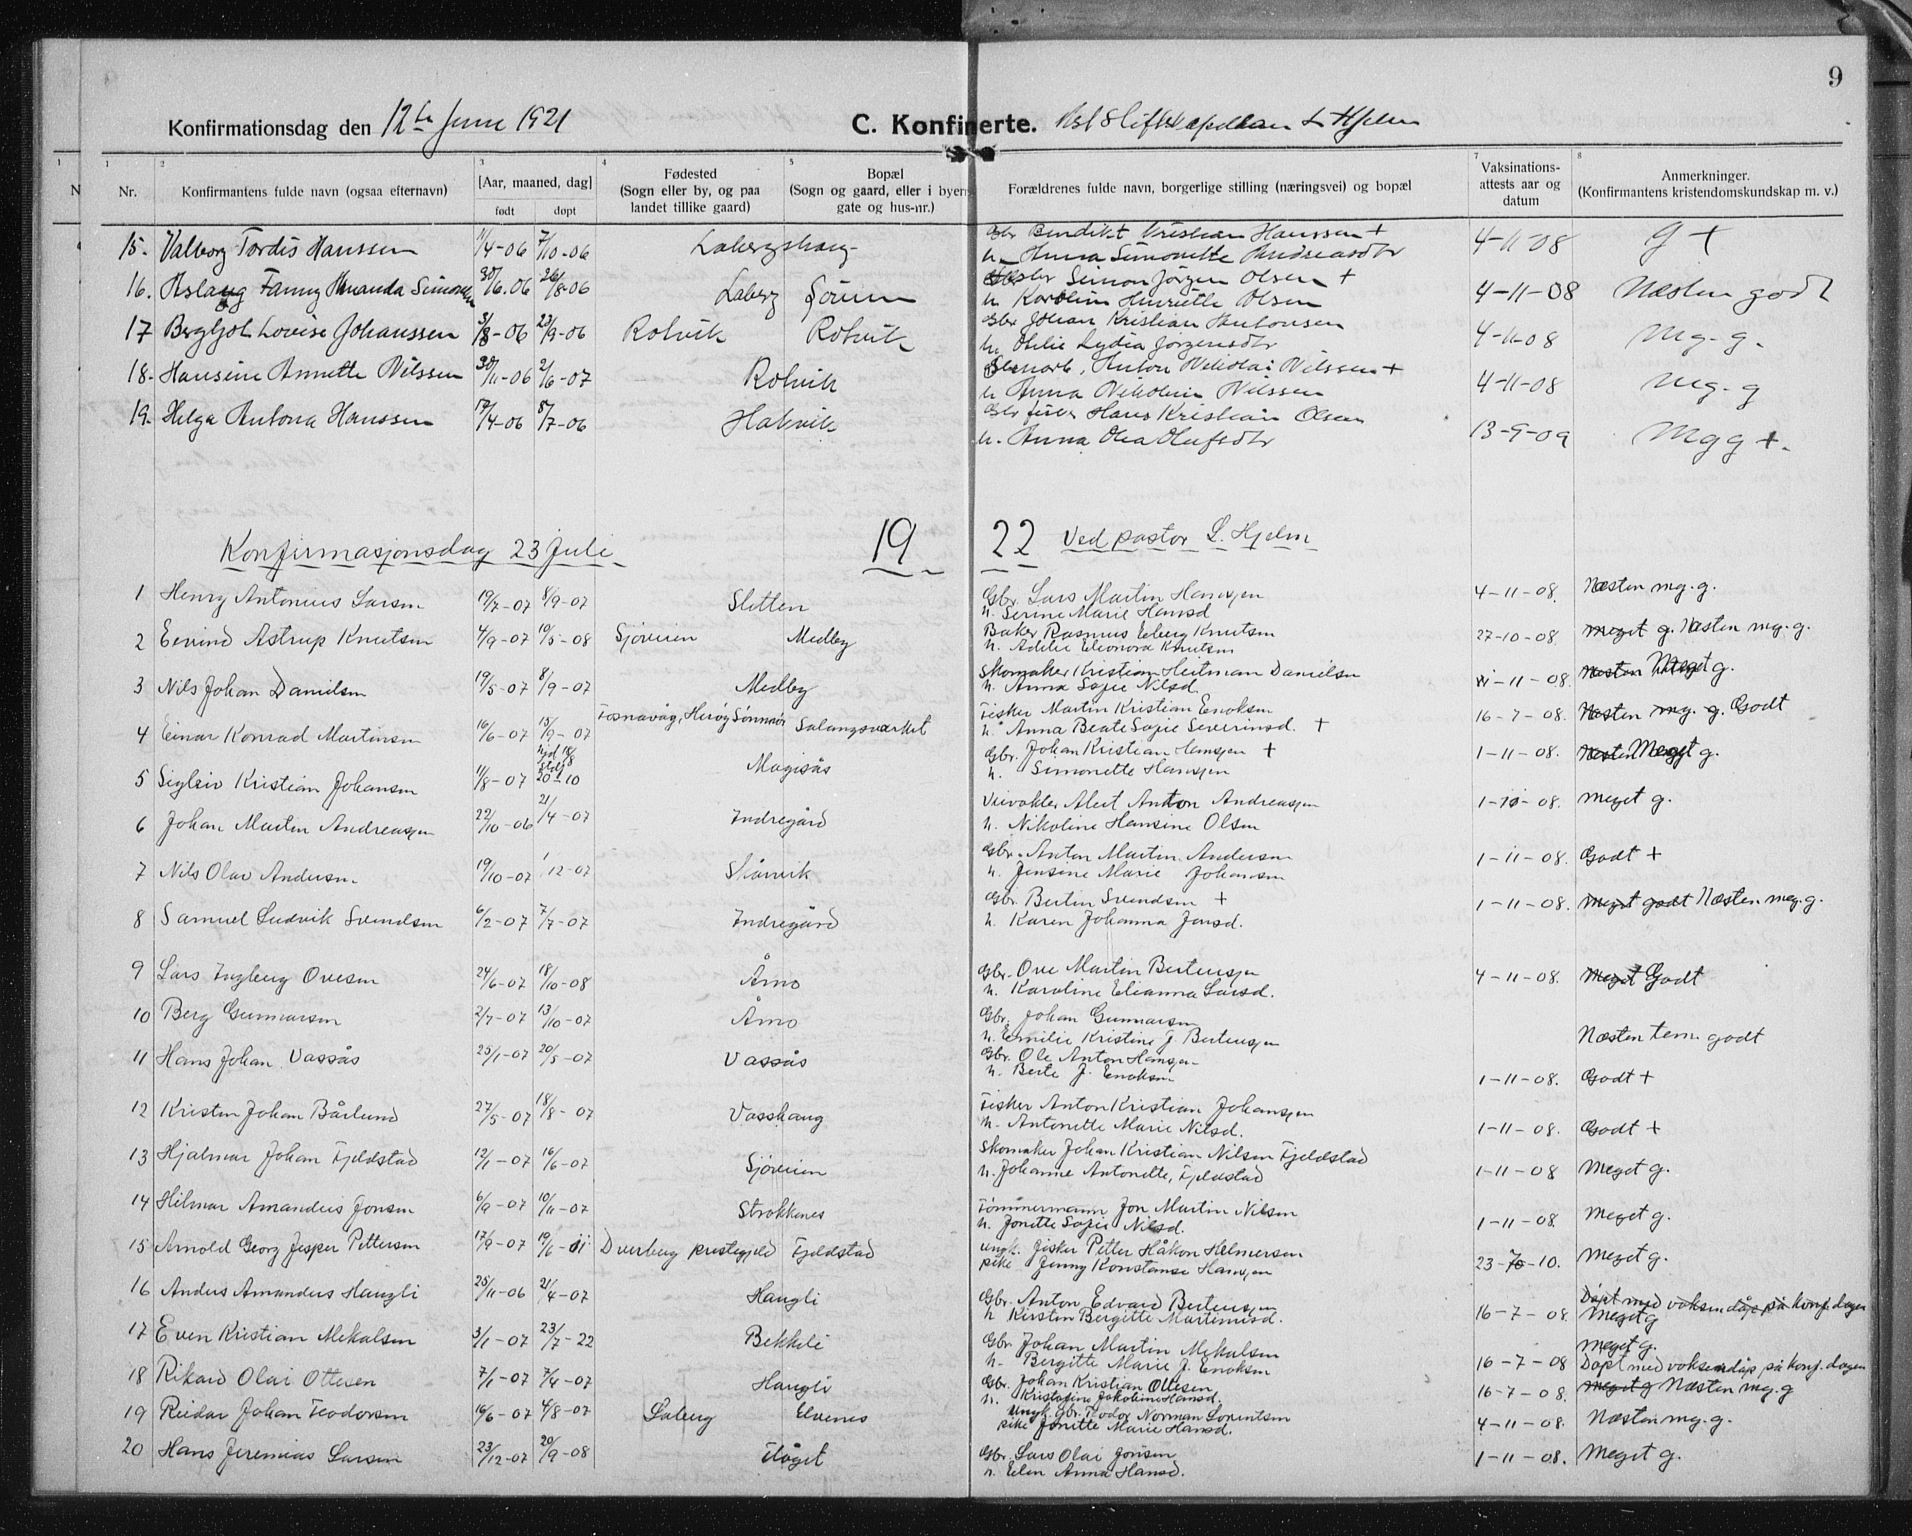 9
Konfirmationsdag den 12te Juni 1921 C. Konfirmerte. L. Hjelm
Nr. Konfirmantens fulde navn (ogsaa efternavn) [Aar, maaned, dag] født døpt Fødested (Sogn eller by, og paa landet tillike gaard) Bopæl (Sogn og gaard, eller i byen gate og hus-nr.) Forældrenes fulde navn, borgerlige stilling (næringsvei) og bopæl Vaksinations-attests aar og datum Anmerkninger. (Konfirmantens kristendomskundskap m. v.)
15. Valborg Tordis Hanssen 11/4-06 7/10-06 Labergshaug Gbr Bendikt Kristian Hanssen + 4-11-08 g +
h. Anna Simonette Andreasdtr
16. Aslaug Fanny Amanda Simonsen 30/6.06 26/8-06 Laberg Sørum Gbr Simon Jörgen Olsen + 4-11-08 Næsten godt
h Karolin Henriette Olsen
17 Bergljot Lovise Johanssen 3/8-06 23/9-06 Rotvik Rotvik Gbr Johan Kristian Antonsen 4-11-08 Mg. g.
h. Otilie Lydia Jörgensdtr
18. Hansine Annette Nilssen 30/11-06 2/6-07 Rotvik Anton Nikolai Nilssen + 4-11-08 Mg. g
h Anna Nikolein Nilssen
19. Helga Antona Hanssen 17/4-06 8/7-06 Hakvik Hans Kristian Olsen 13-9-09 Mgg +.
h. Anna Olea Olufsdtr
Konfirmasjonsdag 23 Juli 19 22 Ved pastor L. Hjelm
1 Henry Antonius Larsen 19/7-07 8/9-07 Sletten Gbr. Lars Martin Hansen 4-11-08. Næsten mg. g.
h. Serine Marie Hansd
2 Eivind Astrup Knutsen 4/9-07 10/5-08 Sjöveien Medby Baker Rasmus Elberg Knutsen 27-10-08. meget g. Næsten mg. g.
h. Adelie Eleonora Knutsen
3 Nils Johan Danielsen 19/5-07 8/9-07 Medby Skomaker Kristian Heitman Danielsen 11-11-08. Næsten Meget g.
h. Anna Sofie Nilsd.
4 Einar Konrad Martinsen 16/6-07 15/9-07 Fosnavåg, Herøy Sønnmør Salangsverket Fisker Martin Kristian Enoksen 16-7-08. Næsten mg. g. Godt
h. Anna Beate Sofie Severinsd. +
5 Sigleiv Kristian Johansen 11/8-07 hjd 18/8 stdf 20-10 Mogisås Gbr. Johan Kristian Hansen + 1-11-08. Næsten Meget g.
h. Simonette Hansen
6 Johan Martin Andreassen 22/10-06 21/4-07 Indregård Veivokter Alert Anton Andreassen 1-11-08. meget g.
h. Nikoline Hansine Olsen
7 Nils Olav Andersen 19/10-07 1/12-07 Skårvik Gbr. Anton Martin Andersen 1-11-08. Godt +
h. Jensine Marie Johansen
8 Samuel Ludvik Svendsen 6/2-07 7/7-07 Indregård Gbr. Bertin Svendsen + 1-11-08. meget godt Næsten meg. g.
h. Karen Johanna Jonsd.
9 Lars Ingberg Ovesen 24/6-07 18/10-08 Årno Gbr. Ove Martin Bertensen 4-11-08. Meget Godt
h. Karoline Elianna Larsd.
10 Berg Gunnarsen 2/7-07 13/10-07 Årno Gbr. Johan Gunnarsen Næsten tem. godt
h. Emilie Kristine J. Bertensen
11 Hans Johan Vassås 25/1-07 20/5-07 Vassås Gbr. Ole Anton Hansen 1-11-08. Godt +
h. Berte J. Enoksen
12 Kristen Johan Bårlund 27/5-07 18/8-07 Vasshaug Fisker Anton Kristian Johansen 1-11-08. Godt +
h. Antonette Marie Nilsd.
13 Hjalmar Johan Fjeldstad 12/1-07 16/6-07 Sjöveien Skomaker Johan Kristian Nilsen Fjeldstad 1-11-08 Meget g.
h. Johanne Antonette, Fjeldstad
14 Hilmar Amandus Jonsen 6/9-07 10/11-07 Strokkenes Tömmermann Jon Martin Nilsen 1-11-08 Meget g.
h. Jonette Sofie Nilsd.
15 Arnold Georg Jesper Pettersen 17/9-07 19/6-11 Dverberg prestegjeld Fjeldstad ungk. fisker Petter Håkon Helmersen 23-7-10. Meget g.
pike Jenny Konstanse Hansen
16 Anders Amandus Haugli 25/11-06 21/4-07 Haugli Gbr. Anton Edvard Bertensen 16-7-08. Døpt med voksendåp på konf. dagen Meget g
h Kirsten Bergitte Martinusd.
17 Even Kristian Mekalsen 3/1-07 23/7-22 Bekkeli Gbr. Johan Martin Mekalsen 16-7-08 Meget g. Døpt med voksendåp på konf. dagen
h. Bergitte Marie J. Enoksen
18 Rikard Olai Ottesen 7/1-07 7/4-07 Haugli Gbr. Johan Kristian Ottesen 16-7-08. meget g Næsten mg. g
h. Kristofine Jakobine Hansd.
19 Reidar Johan Teodorsen 16/6-07 4/8-07 Laberg Elvenes Ungk. Gbr. Teodor Norman Lorentsen 4-11-08. Næsten mg. g.
pike Jonette Marie Hansd.
20 Hans Jeremias Larsen 23/12-07 20/9-08 Flåget Gbr. Lars Olai Jonsen 1-11-08. Meget g.
h. Elen Anna Hansd.